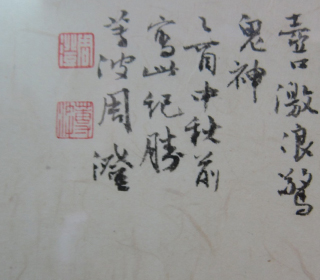 壺口激浪驚
鬼神
乙酉中秋前
寫此紀勝
蓴波周澄